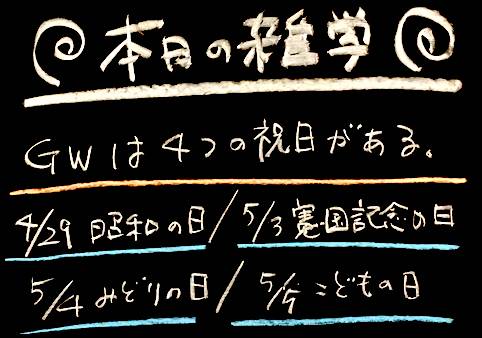 本日の雑学
GWは4つの祝日がある。
4/29 昭和の日/5/3 憲国記念の日
5/4 みどりの日/5/5 こどもの日